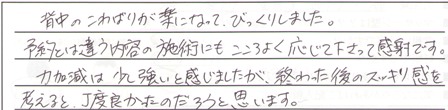 背中のこわばりが楽になって、びっくりしました。
予約とは違う内容の施術にもこころよく応じて下さって感謝です。
力加減は少し強いと感じましたが、終わった後のスッキリ感を
考えると、丁度良かったのだろうと思います。